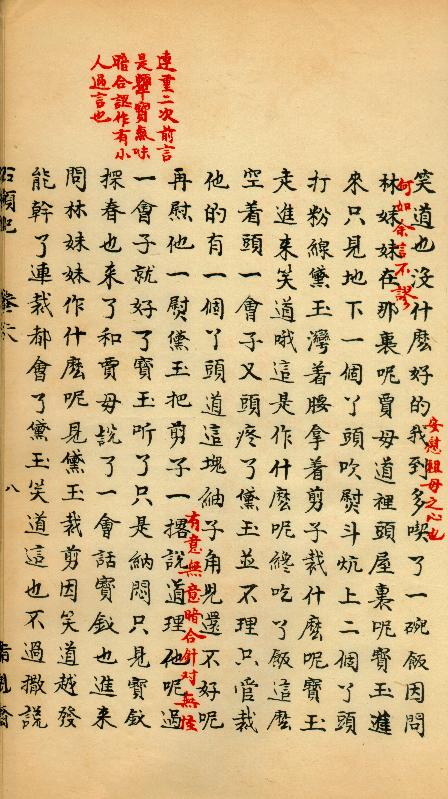 笑道也沒什麽好的我到多喫了一碗飯因問
何如余言不謬
林妹妹在那裏呢賈母道裡頭屋裏呢寳玉進
安慰祖母之心也
來只見地下一個丫頭吹熨斗炕上二個丫頭
打粉線黛玉灣着腰拿着剪子裁什麽呢寳玉
走進來笑道哦這是作什麽呢纔吃了飯這麽
空着頭一會子又頭疼了黛玉並不理只管裁
他的有一個丫頭道這塊紬子角兒還不好呢
再慰他一熨黛玉把剪子一撂說道理他呢過
有意無意暗合針对無怪
一會子就好了寳玉聽了只是納悶只見寳釵
探春也來了和賈母說了一會話寳釵也進來
問林妹妹作什麽呢見黛玉裁剪因笑道越發
能幹了連裁都會了黛玉笑道這也不過撒說
連重二次前言
是顰寳氣味
暗合認作有小
人過言也
石頭記
八